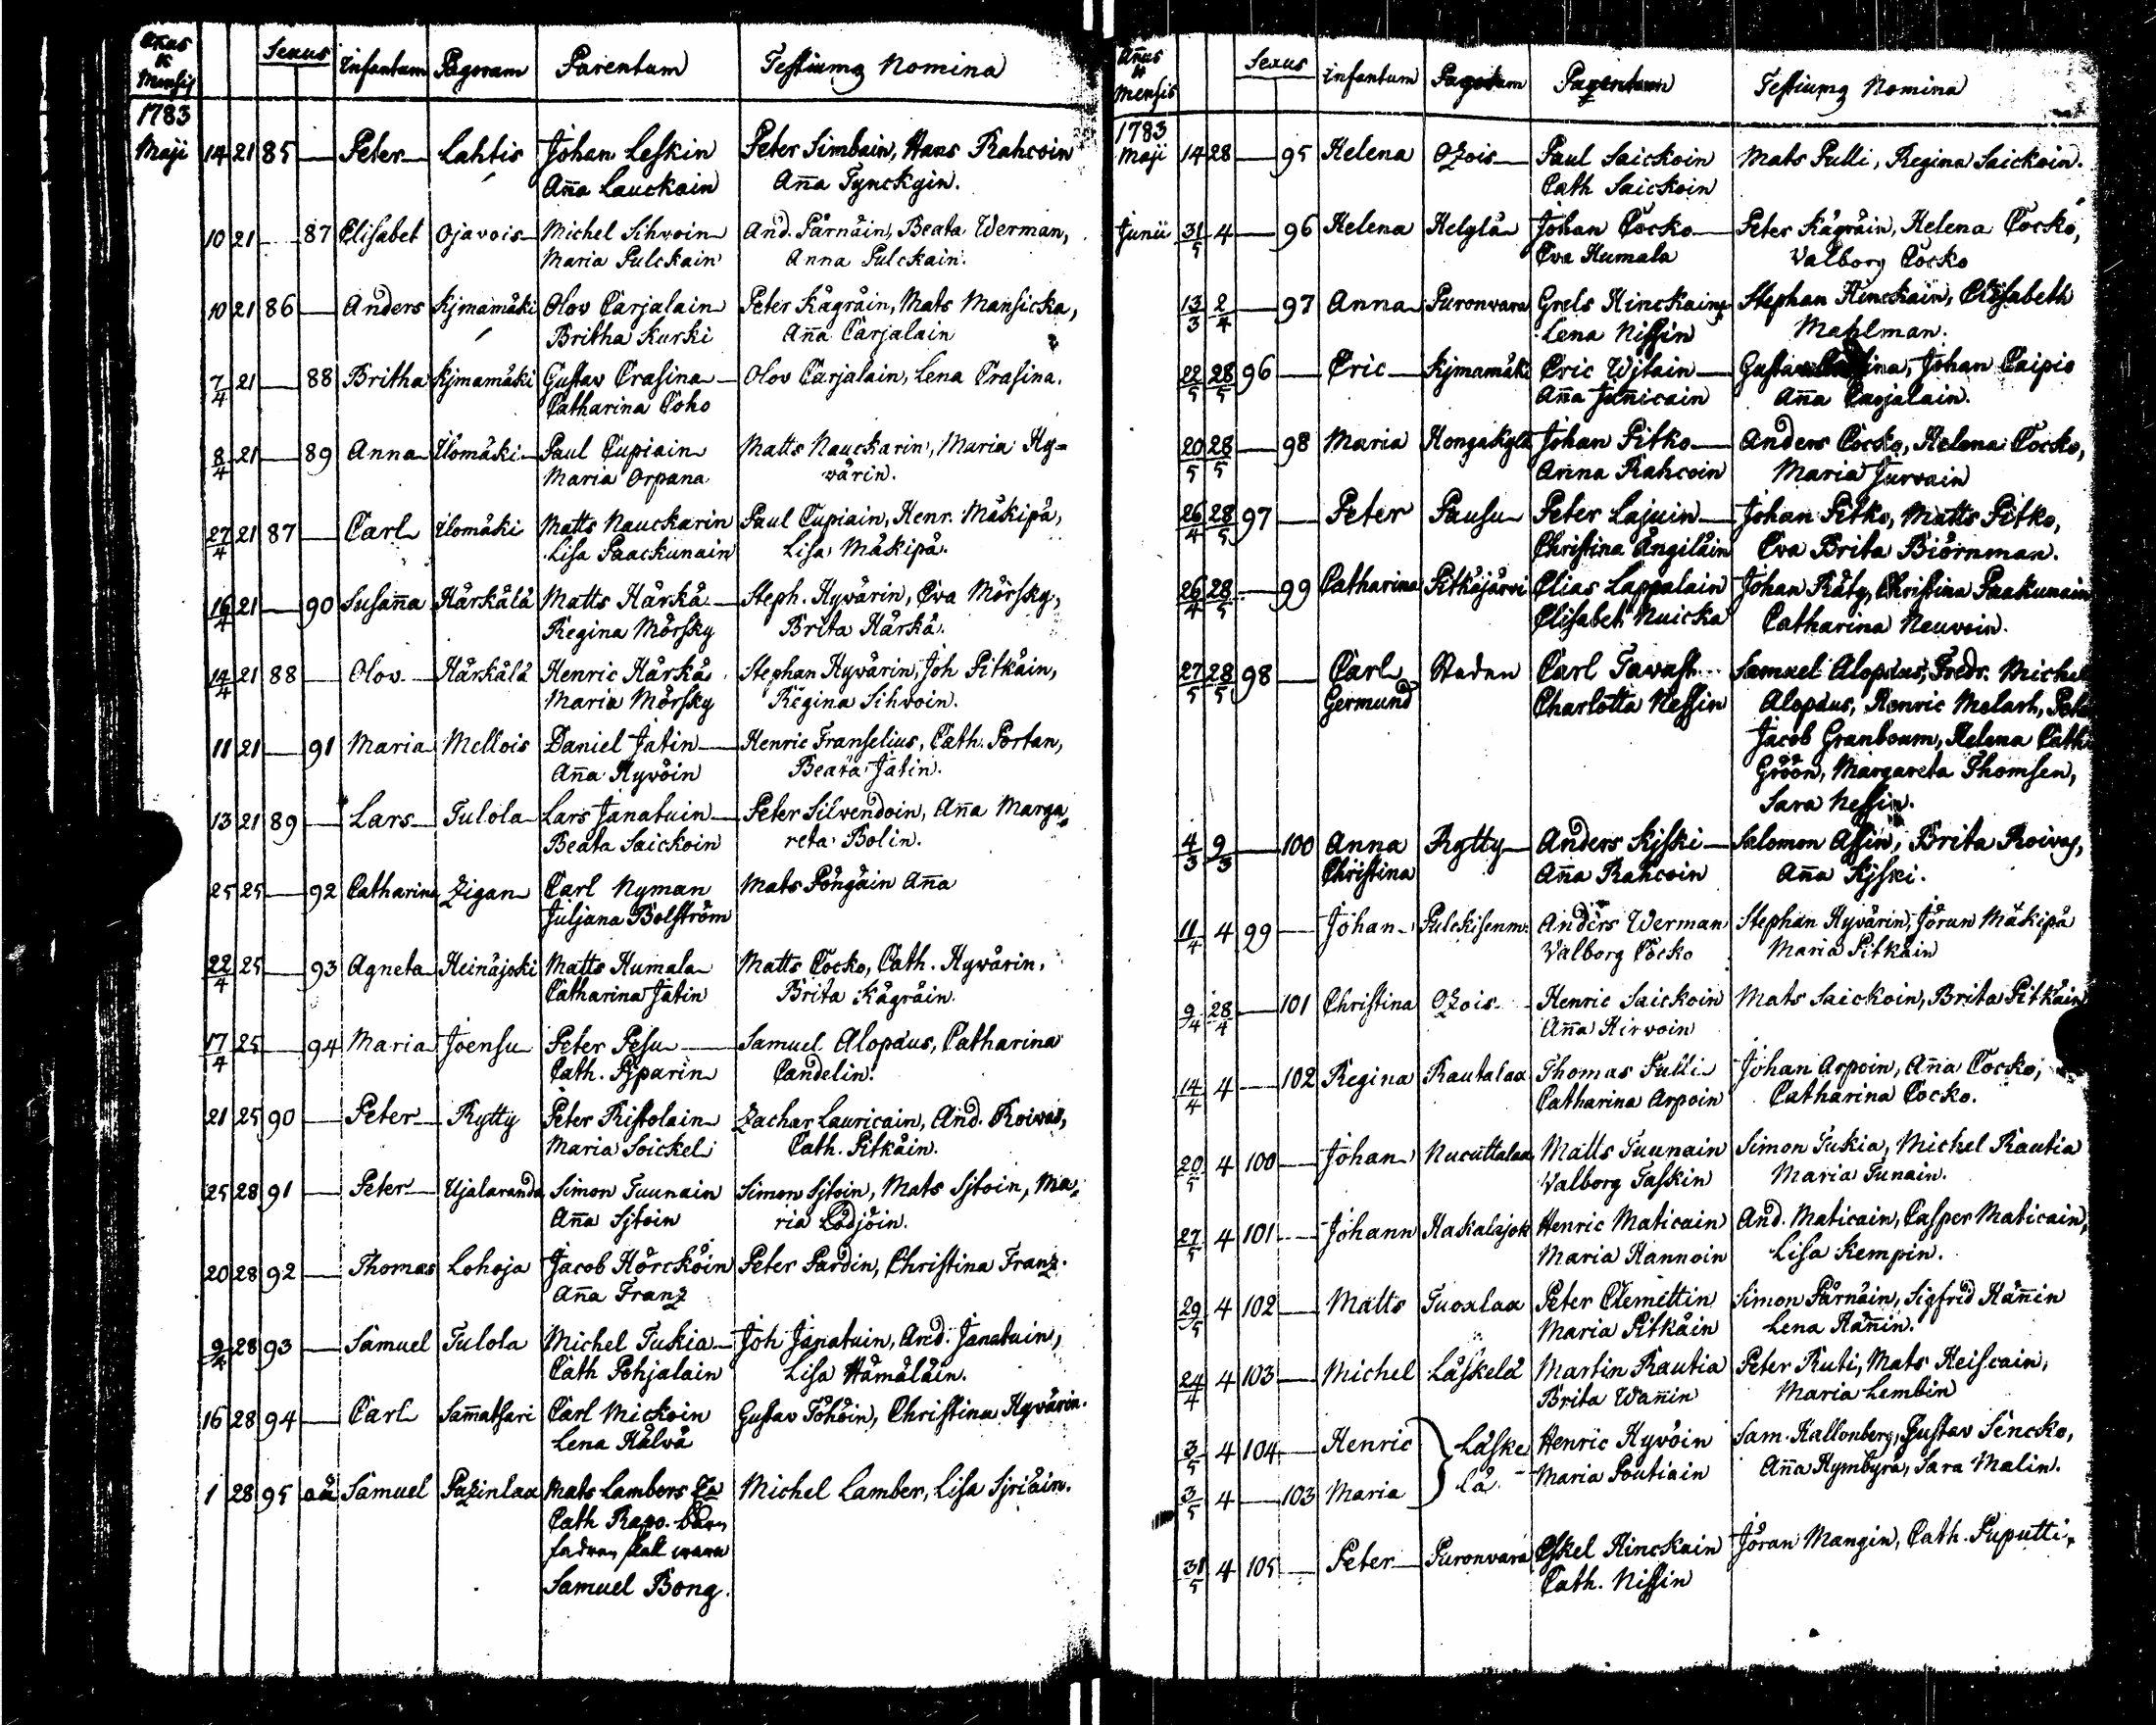 Añus & Mensis Sexus Infantum Pagorum Parentum Testiumq Nomina
1783
Maji 14 21 85 — Peter Lahtis Johan Leskin Peter Simbain, Hans Rahcoin
Aña Lauckain Aña Tynckyin.
10 21 — 87 Elisabet Ojavois Michel Sihvoin And. Pärnäin, Beata Werman,
Maria Pulckain Anna Pulckain.
10 21 86 — Anders Kjmamäki Olov Carjalain Peter Kägräin, Mats Mansicka,
Britha Kurki Aña Carjalain
7/4 21 — 88 Britha Kjmamäki Gustav Crasina Olov Carjalain, Lena Crasina.
Catharina Coho
8/4 21 — 89 Anna Ilomäki Paul Cupiain Matts Nauckarin, Maria Hy=
Maria Orpana wärin.
27/4 21 87 — Carl Ilomäki Matts Nauckarin Paul Cupiain, Henr. Mäkipä,
Lisa Paackunain Lisa Mäkipä.
16/4 21 — 90 Susaña Härkälä Matts Härkä Steph. Hyvärin, Eva Mörsky,
Regina Mörsky Brita Härkä.
14/4 21 88 — Olov Härkälä Henric Härkä Stephan Hyvärin, Joh Pitkäin,
Maria Mörsky Regina Sihvoin.
11 21 — 91 Maria Mellois Daniel Jatin Henric Franselius, Cath. Portan,
Aña Hyvöin Beata Jatin.
13 21 89 — Lars Tulola Lars Janatuin Peter Silvendoin, Aña Marga,
Beata Saickoin reta Bolin.
25 25 — 92 Catharina Zigan Carl Nyman Mats Pöngäin Aña
Juljana Bolström
22/4 25 — 93 Agneta Heinäjoki Matts Humala Matts Cocko, Cath. Hyvärin.
Catharina Jatin Brita Kägräin.
17/4 25 — 94 Maria Joensu Peter Pesu Samuel Alopäus, Catharina
Cath. Pjparin Candelin.
21 25 90 — Peter Rytty Peter Ristolain Zachar Lauricain, And. Roivas,
Maria Soickeli Cath. Pitkäin.
25 28 91 — Peter Ujalaranda Simon Tuunain Simon Sjtoin, Mats Sjtoin, Ma,
Aña Sjtoin ria Lödjöin.
20 28 92 — Thomas Lohoja Jacob Hörcköin Peter Pardin, Christina Franz.
Aña Franz
9/4 28 93 — Samuel Tulola Michel Tukia Joh Janatuin, And. Janatuin,
Cath Pohjalain Lisa Hämäläin.
16 28 94 — Carl Sam̃atsari Carl Mickoin Gustav Töhöin, Christina Hyvärin.
Lena Hälvä
1 28 95 oä Samuel Pazinlax Mats Lambers Michel Lamber, Lisa Sjriäin.
Cath Rapo. barn
fadren skall wara
Samuel Bong.
Añus & mensis Sexus infantum Pagorum Parentum Testiumq Nomina
1783
Maji 14 28 — 95 Helena Ozois Paul Saickoin Mats Pulli, Regina Saickoin.
Cath Saickoin
Junii 31/5 4 — 96 Helena Helylä Johan Cocko Peter Kägräin, Helena Cocko,
Eva Humala Valborg Cocko
13/3 2/4 — 97 Anna Puronvara Grels Hinckain Stephan Hinckain, Elisabeth
Lena Nissin Mahlman.
22/5 28/5 96 — Eric Kjmamäki Eric Wjtain Johan Caipio
Aña Juñicain Aña Carjalain.
20/5 28/5 — 98 Maria Hongakylä Johan Pitko Anders Cocko, Helena Cocko,
Anna Rahcoin Maria Jurvain
26/4 28/5 97 — Peter Pausu Peter Lajuin Johan Pitko, Matts Pitko,
Christina Ängiläin Eva Brita Biörnman.
26/4 28/5 — 99 Catharina Pitkäjärvi Elias Lappalain Johan Räty, Christina Paakunain
Elisabet Nuicka Catharina Neuvoin.
27/5 28/5 98 — Carl Staden Carl Tavast Samuel Alopäus, Fredr. Michel
Germund Charlotta Nessin Alopäus, Henric Melart,
Jacob Granboum, Helena Cath
Gröön, Margareta Thomsen,
Sara Nessin.
4/3 9/3 — 100 Anna Rytty Anders Kjski Salomon Assin, Brita Roivas,
Christina Aña Rahcoin Aña Kjski.
11/4 4 99 — Johan Pulckisenm. Anders Werman Stephan Hyvärin, Jöran Mäkipä
Valborg Cocko Maria Pitkäin
9/4 28/4 — 101 Christina Ozois Henric Saickoin Mats Saickoin, Brita Pitkäin
Aña Hirvoin
14/4 4 — 102 Regina Rautalax Thomas Pulli Johan Arpoin, Aña Cocko,
Catharina Arpoin Catharina Cocko.
20/5 4 100 — Johan Nucuttalax Matts Tuunain Simon Tukia, Michel Rautia
Valborg Taskin Maria Tunain.
27/5 4 101 — Johann Haskalajok Henric Maticain And. Maticain, Casper Maticain,
Maria Hannoin Lisa Kempin.
29/5 4 102 — Matts Tuoxlax Peter Clemettin Simon Pärnäin, Sigfred Häñin
Maria Pitkäin Lena Häñin.
24/4 4 103 — Michel Läskelä Martin Rautia Peter Ruti, Mats Heiscain,
Brita Wañin Maria Lembin
3/5 4 104 — Henric } Läske Henric Hyvöin Sam. Hallonberg, Gustav Sencko,
lä Maria Poutiain Aña Hymbyrä, Sara Malin.
3/5 4 — 103 Maria
31/5 4 105 — Peter Puronvara Eskel Hinckain Jöran Mangin, Cath. Puputti.
Cath. Nissin